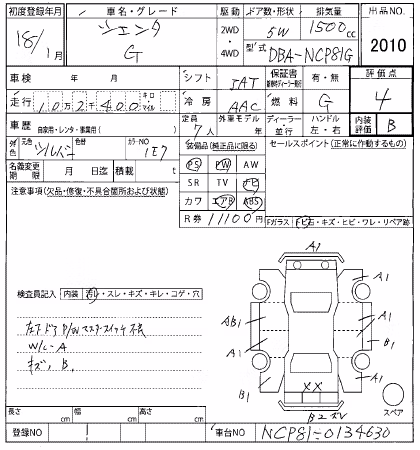 初度登録年月 車名・グレード 駆動 ドア数・形状 排気量 出品NO.
18/1月 シエンタ G 2WD・4WD 5W 1500cc 2010
型式 DBA-NCP81G
車検 年 月 シフト IAT 保証書 有・無 評価点
走行 10万2千400 キロ マイル 冷房 AAC 燃料 G 4
車歴 自家用・レンタ・事業用( ) 定員 7人 外車モデル 年 ディーラー・並行 ハンドル 左・右 内装評価 B
外色 元色 シルバー 色替 カラーNO 1E7 装備品(純正品に限る) セールスポイント(正常に動作する物)
名義変更期限 月 日迄 積載 t
PS PW AW
注意事項(欠品・修復・不具合箇所および状態) SR TV ナビ
カワ エアB ABS
R券 11100円
Fガラス トビ石・キズ・ヒビ・ワレ・リペア跡
A1
A1
A1
検査員記入 内装 汚レ・スレ・キズ・キレ・コゲ・穴
AB1
右フドアP/Wマスタースイッチ不良
W/L-A
A1
B1
キズ,B.
B1
XX
A1
B2
スペア
長さ cm 幅 cm 高さ cm
登録NO 車台NO NCP81-0134630